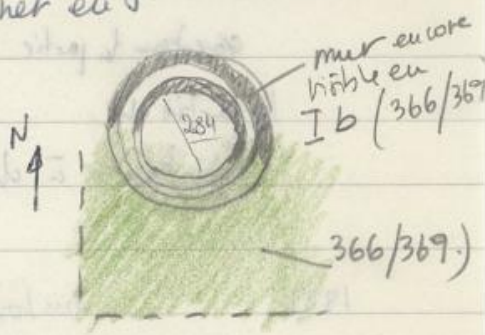 mur encore
visible en
I b (366/369
N
284
366/369.)